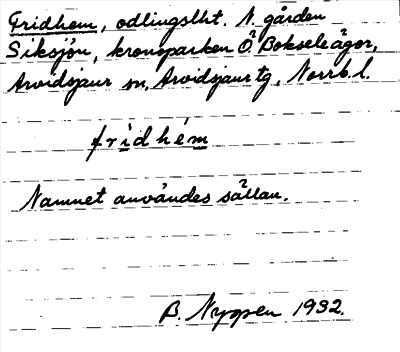 Fridhem, odlingslht. N. gården
Siksjön, kronoparken Ö Bokseleågor,
Arvidsjaur sn, Arvidsjaur tg, Norrb. l.
fridhém
Namnet användes sällan.
B. Nygren 1932.